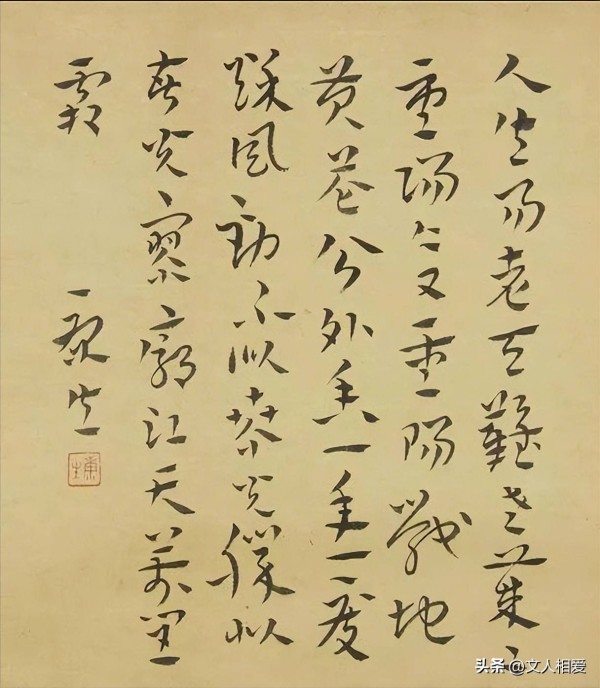 人生易老天難老歲〻
重陽今又重陽戰地
黃花分外香一年一度
秋風勁不似春光勝似
春光寥廓江天萬里
霜
头条 @文人相爱